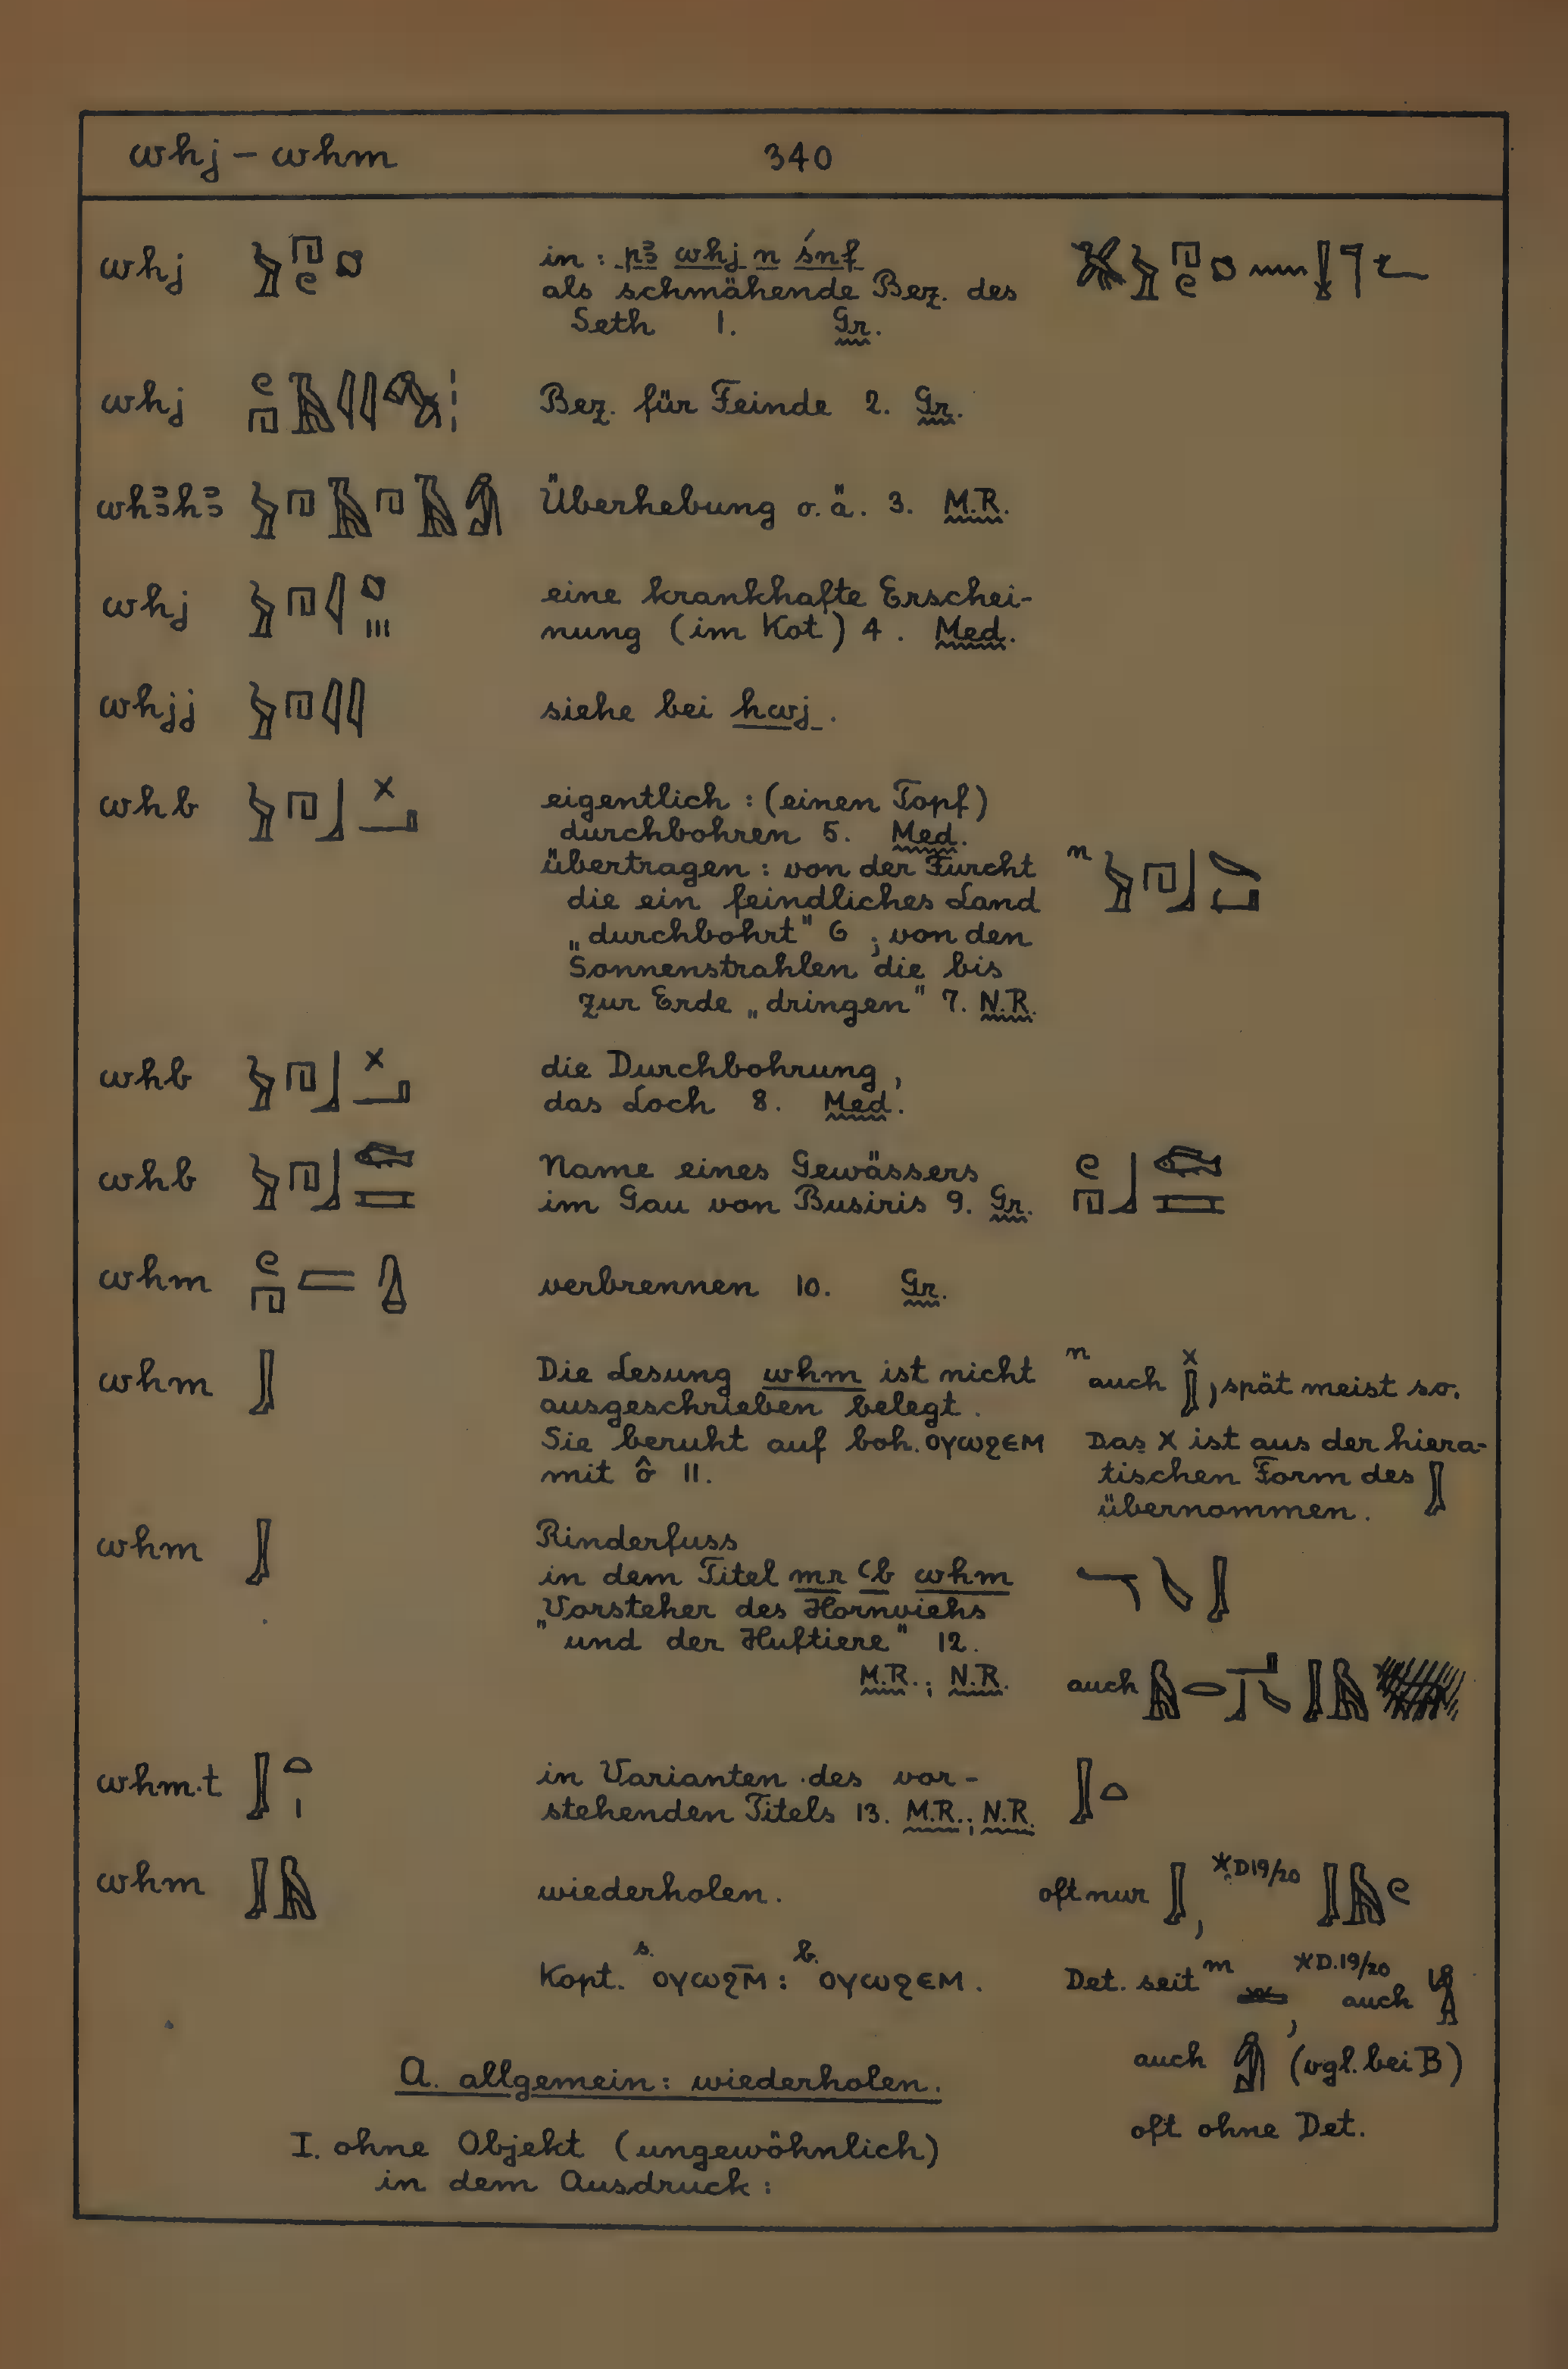 whj – whm 340
whj in: pꜣ whj n śnf
als schmähende Bez. des
Seth 1. Gr.
whj Bez. für Feinde 2. Gr.
whꜣhꜣ Überhebung o.ä. 3. M.R.
whj eine krankhafte Erschei-
nung (im Kot) 4. Med.
whjj siehe bei hwj.
whb eigentlich: (einen Topf)
durchbohren 5. Med.
übertragen: von der Furcht n
die ein feindliches Land
„durchbohrt" 6; von den
Sonnenstrahlen die bis
zur Erde „dringen" 7. N.R.
whb die Durchbohrung,
das Loch 8. Med.
whb Name eines Gewässers
im Gau von Busiris 9. Gr.
whm verbrennen 10. Gr.
whm Die Lesung whm ist nicht
ausgeschrieben belegt.
Sie beruht auf boh. ⲟⲩⲱϩⲉⲙ
mit ô 11.
n auch , spät meist so.
Das X ist aus der hiera-
tischen Form des
übernommen.
whm Rinderfuss
in dem Titel mr ꜥb whm
„Vorsteher des Hornviehs
und der Huftiere" 12.
M.R.; N.R. auch
whm.t in Varianten des vor-
stehenden Titels 13. M.R.; N.R.
whm wiederholen. oft nur , *D19/20
Kopt. s. ⲟⲩⲱϩⲙ̄ : b. ⲟⲩⲱϩⲉⲙ.
Det. seit m , *D.19/20 auch
auch (vgl. bei B)
oft ohne Det.
A. allgemein: wiederholen.
I. ohne Objekt (ungewöhnlich)
in dem Ausdruck: